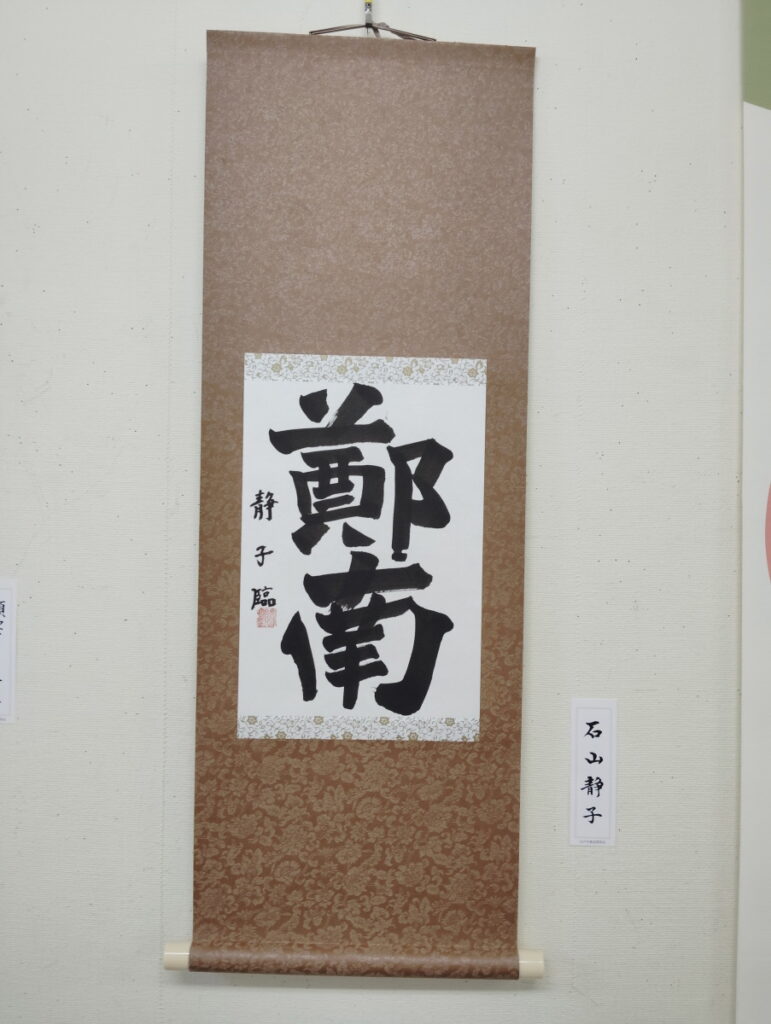 鄭南
静子臨
石山静子